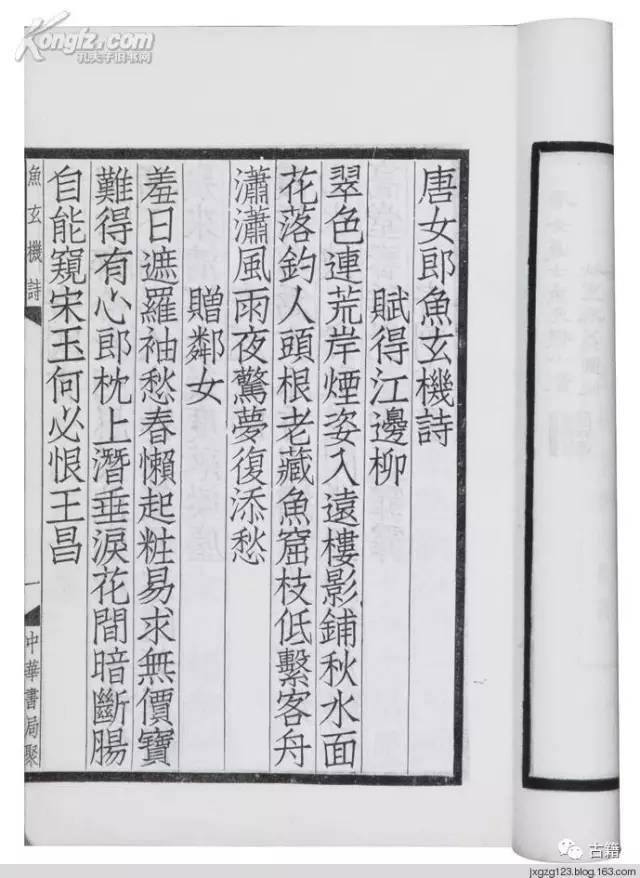 唐女郎魚玄機詩
賦得江邊柳
翠色連荒岸煙姿入遠樓影鋪秋水面
花落釣人頭根老藏魚窟枝低繫客舟
瀟瀟風雨夜驚夢復添愁
贈鄰女
羞日遮羅袖愁春懶起粧易求無價寶
難得有心郎枕上潛垂淚花間暗斷腸
自能窺宋玉何必恨王昌
魚玄機詩
一
中華書局聚
Kongfz.com
孔夫子旧书网
古籍
jxgzg123.blog.163.com